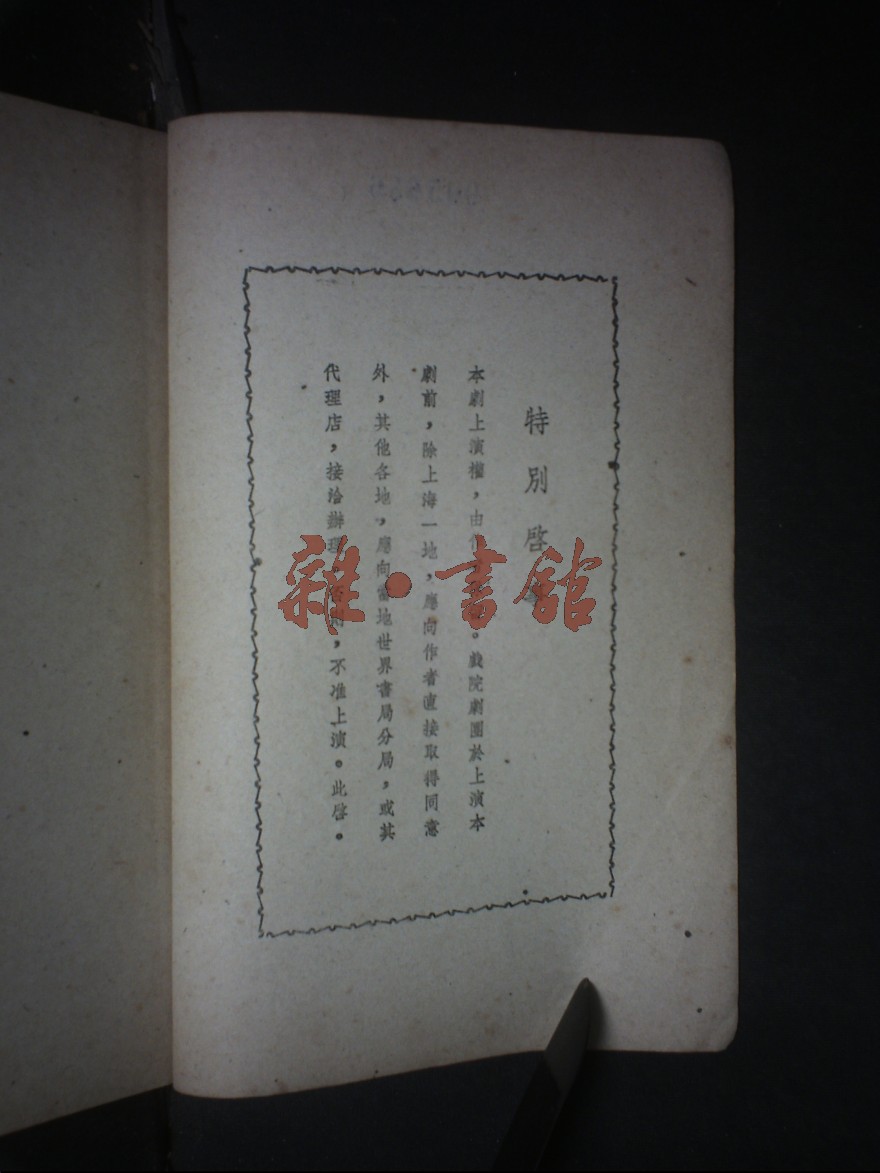 特別啓
本劇上演權，由。戲院劇團於上演本
劇前，除上海一地，應向作者直接取得同意
外，其他各地，應向當地世界書局分局，或其
代理店，接洽辦理，否則，不准上演。此啓。
雜·書館